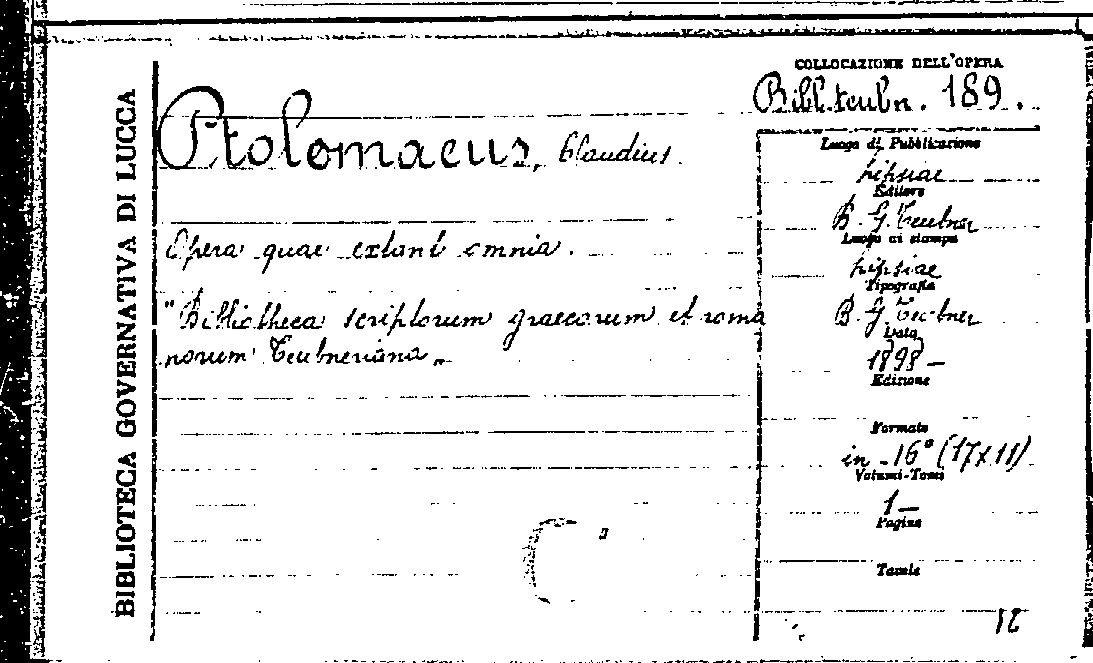 BIBLIOTECA GOVERNATIVA DI LUCCA
Ptolomaeus, Claudius.
Opera quae extant omnia.
"Bibliotheca scriptorum graecorum et roma
norum Teubneriana„
COLLOCAZIONE DELL'OPERA
Bibl. teubn. 189.
Luogo di Pubblicazione
Lipsiae
Editore
B. G. Teubner
Luogo di stampa
Lipsiae
Tipografia
B. G. Teubner
Data
1898 –
Edizione
Formato
in - 16° (17x11)
Volumi-Tomi
1 –
Pagine
Tavole